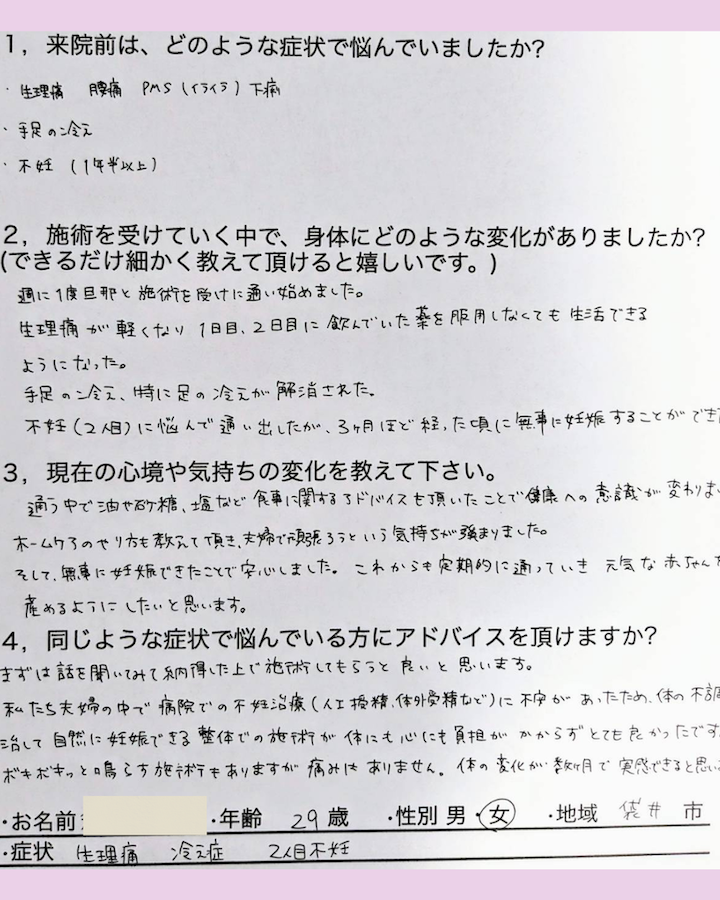 1，来院前は、どのような症状で悩んでいましたか?
・生理痛 腰痛 PMS（イライラ）下痢
・手足の冷え
・不妊（1年半以上）
2，施術を受けていく中で、身体にどのような変化がありましたか?
(できるだけ細かく教えて頂けると嬉しいです。)
週に1度旦那と施術を受けに通い始めました。
生理痛が軽くなり1日目、2日目に飲んでいた薬を服用しなくても生活できる
ようになった。
手足の冷え、特に足の冷えが解消された。
不妊（2人目）に悩んで通い出したが、3ヶ月ほど経った頃に無事に妊娠することができ
3，現在の心境や気持ちの変化を教えて下さい。
通う中で油や砂糖、塩など食事に関するアドバイスを頂いたことで健康への意識が変わりま
ホームケアのやり方も教えて頂き、夫婦で頑張ろうという気持ちが強まりました。
そして、無事に妊娠できたことで安心しました。これからも定期的に通っていき 元気な赤ちゃんを
産めるようにしたいと思います。
4，同じような症状で悩んでいる方にアドバイスを頂けますか?
まずは話を聞いてみて納得した上で施術してもらうと良いと思います。
私たち夫婦の中で病院での不妊治療（人工授精、体外受精など）に不安があったため、体の不調
治して自然に妊娠できる整体での施術が体にも心にも負担がかからずとても良かったです。
ボキボキッと鳴らす施術もありますが痛みはありません。体の変化が数ヶ月で実感できると思い
・お名前 ・年齢 29歳 ・性別 男・女 ・地域 袋井 市
・症状 生理痛 冷え症 2人目不妊